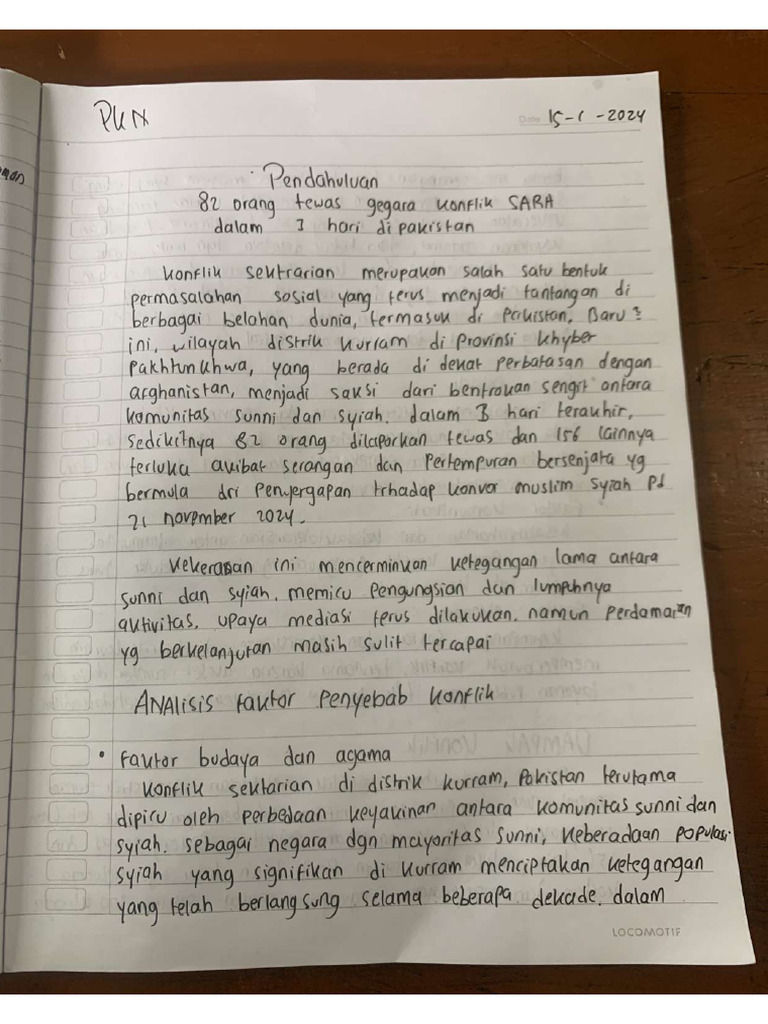 PKN
Date 15-1-2024
Pendahuluan
82 orang tewas gegara konflik SARA
dalam 3 hari di pakistan
konflik sektrarian merupakan salah satu bentuk
permasalahan sosial yang terus menjadi tantangan di
berbagai belahan dunia, termasuk di Pakistan, Baru²
ini, wilayah distrik kurram di Provinsi khyber
Pakhtunkhwa, yang berada di dekat perbatasan dengan
arghanistan, menjadi saksi dari bentrokan sengit antara
komunitas sunni dan syiah. dalam 3 hari terakhir,
sedikitnya 82 orang dilaporkan tewas dan 156 lainnya
terluka akibat serangan dan Pertempuran bersenjata yg
bermula dri Penyergapan trhadap konvoi muslim syiah pd
21 november 2024.
kekerasan ini mencerminkan ketegangan lama antara
sunni dan syiah. memicu Pengungsian dan lumpuhnya
aktivitas. upaya mediasi terus dilakukan. namun Perdamaian
yg berkelanjutan masih sulit tercapai
ANAlisis faktor Penyebab konflik
• faktor budaya dan agama
konflik sektarian di distrik kurram, Pakistan terutama
dipicu oleh perbedaan keyakinan antara komunitas sunni dan
syiah. sebagai negara dgn mayoritas sunni, keberadaan populasi
syiah yang signifikan di kurram menciptakan ketegangan
yang telah berlangsung selama beberapa dekade. dalam
LOCOMOTIF